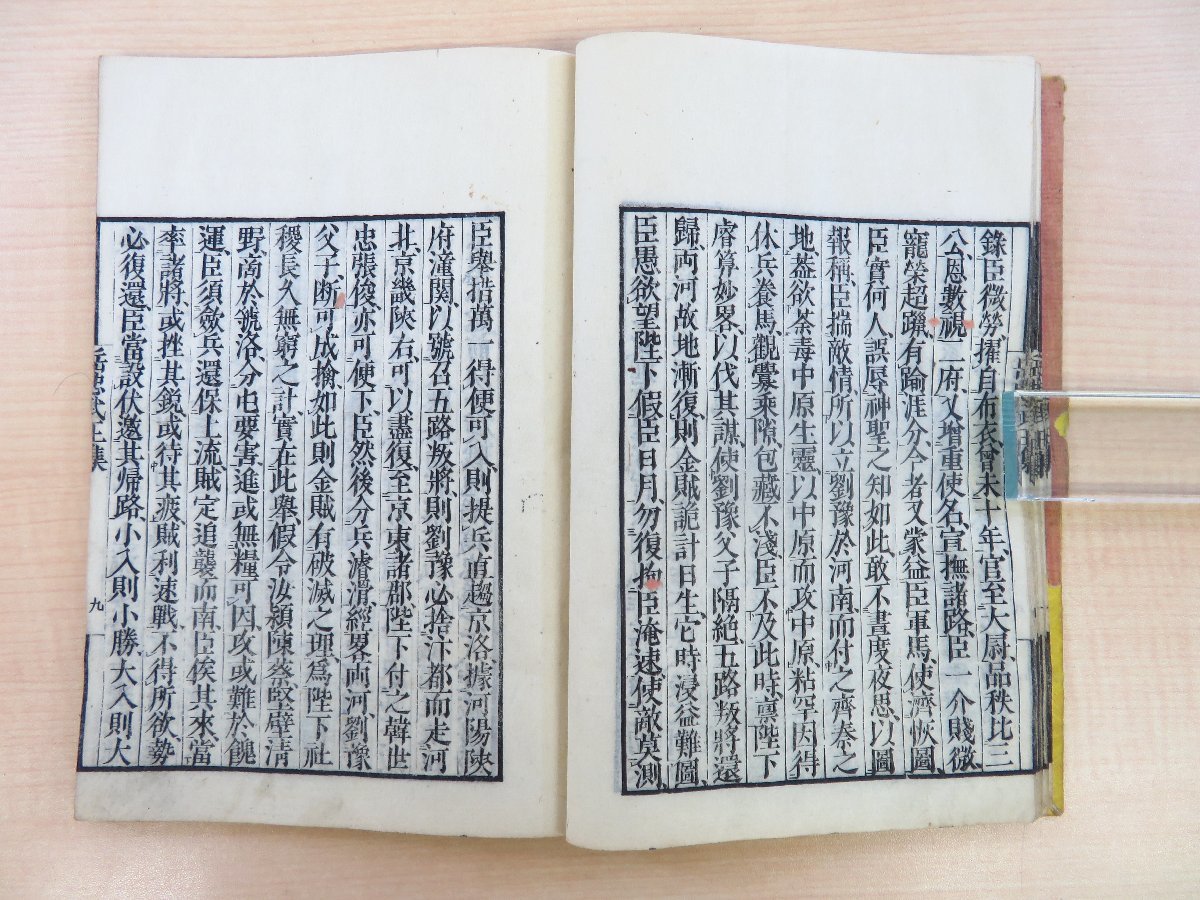 錄臣微勞擢自布衣曾未十年官至大尉品秩比三
公恩數視二府又增重使名宣撫諸路臣一介賤微
寵榮超躐有踰涯分今者又蒙益臣軍馬使濟恢圖
臣實何人誤辱神聖之知如此敢不晝度夜思以圖
報稱臣揣敵情所以立劉豫於河南而付之齊秦之
地蓋欲荼毒中原生靈以中原而攻中原粘罕因得
休兵養馬觀釁乘隙包藏不淺臣不及此時稟陛下
睿算妙畧以伐其謀使劉豫父子隔絕五路叛將還
歸兩河故地漸復則金賊詭計日生它時浸益難圖
臣愚欲望陛下假臣日月勿復拘臣淹速使敵莫測
臣舉措萬一得便可入則提兵直趨京洛據河陽陝
府潼關以號召五路叛將則劉豫必捨汴都而走河
北京畿陝右可以盡復至京東諸郡陛下付之韓世
忠張俊亦可便下臣然後分兵濬滑經畧兩河劉豫
父子斷可成擒如此則金賊有破滅之理爲陛下社
稷長久無窮之計實在此舉假令汝潁陳蔡堅壁清
野商於虢洛分屯要害進或無糧可因攻或難於餽
運臣須斂兵還保上流賊定追襲而南臣俟其來當
率諸將或挫其銳或待其疲賊利速戰不得所欲勢
必復還臣當設伏邀其帰路小入則小勝大入則大
岳忠武王集
九